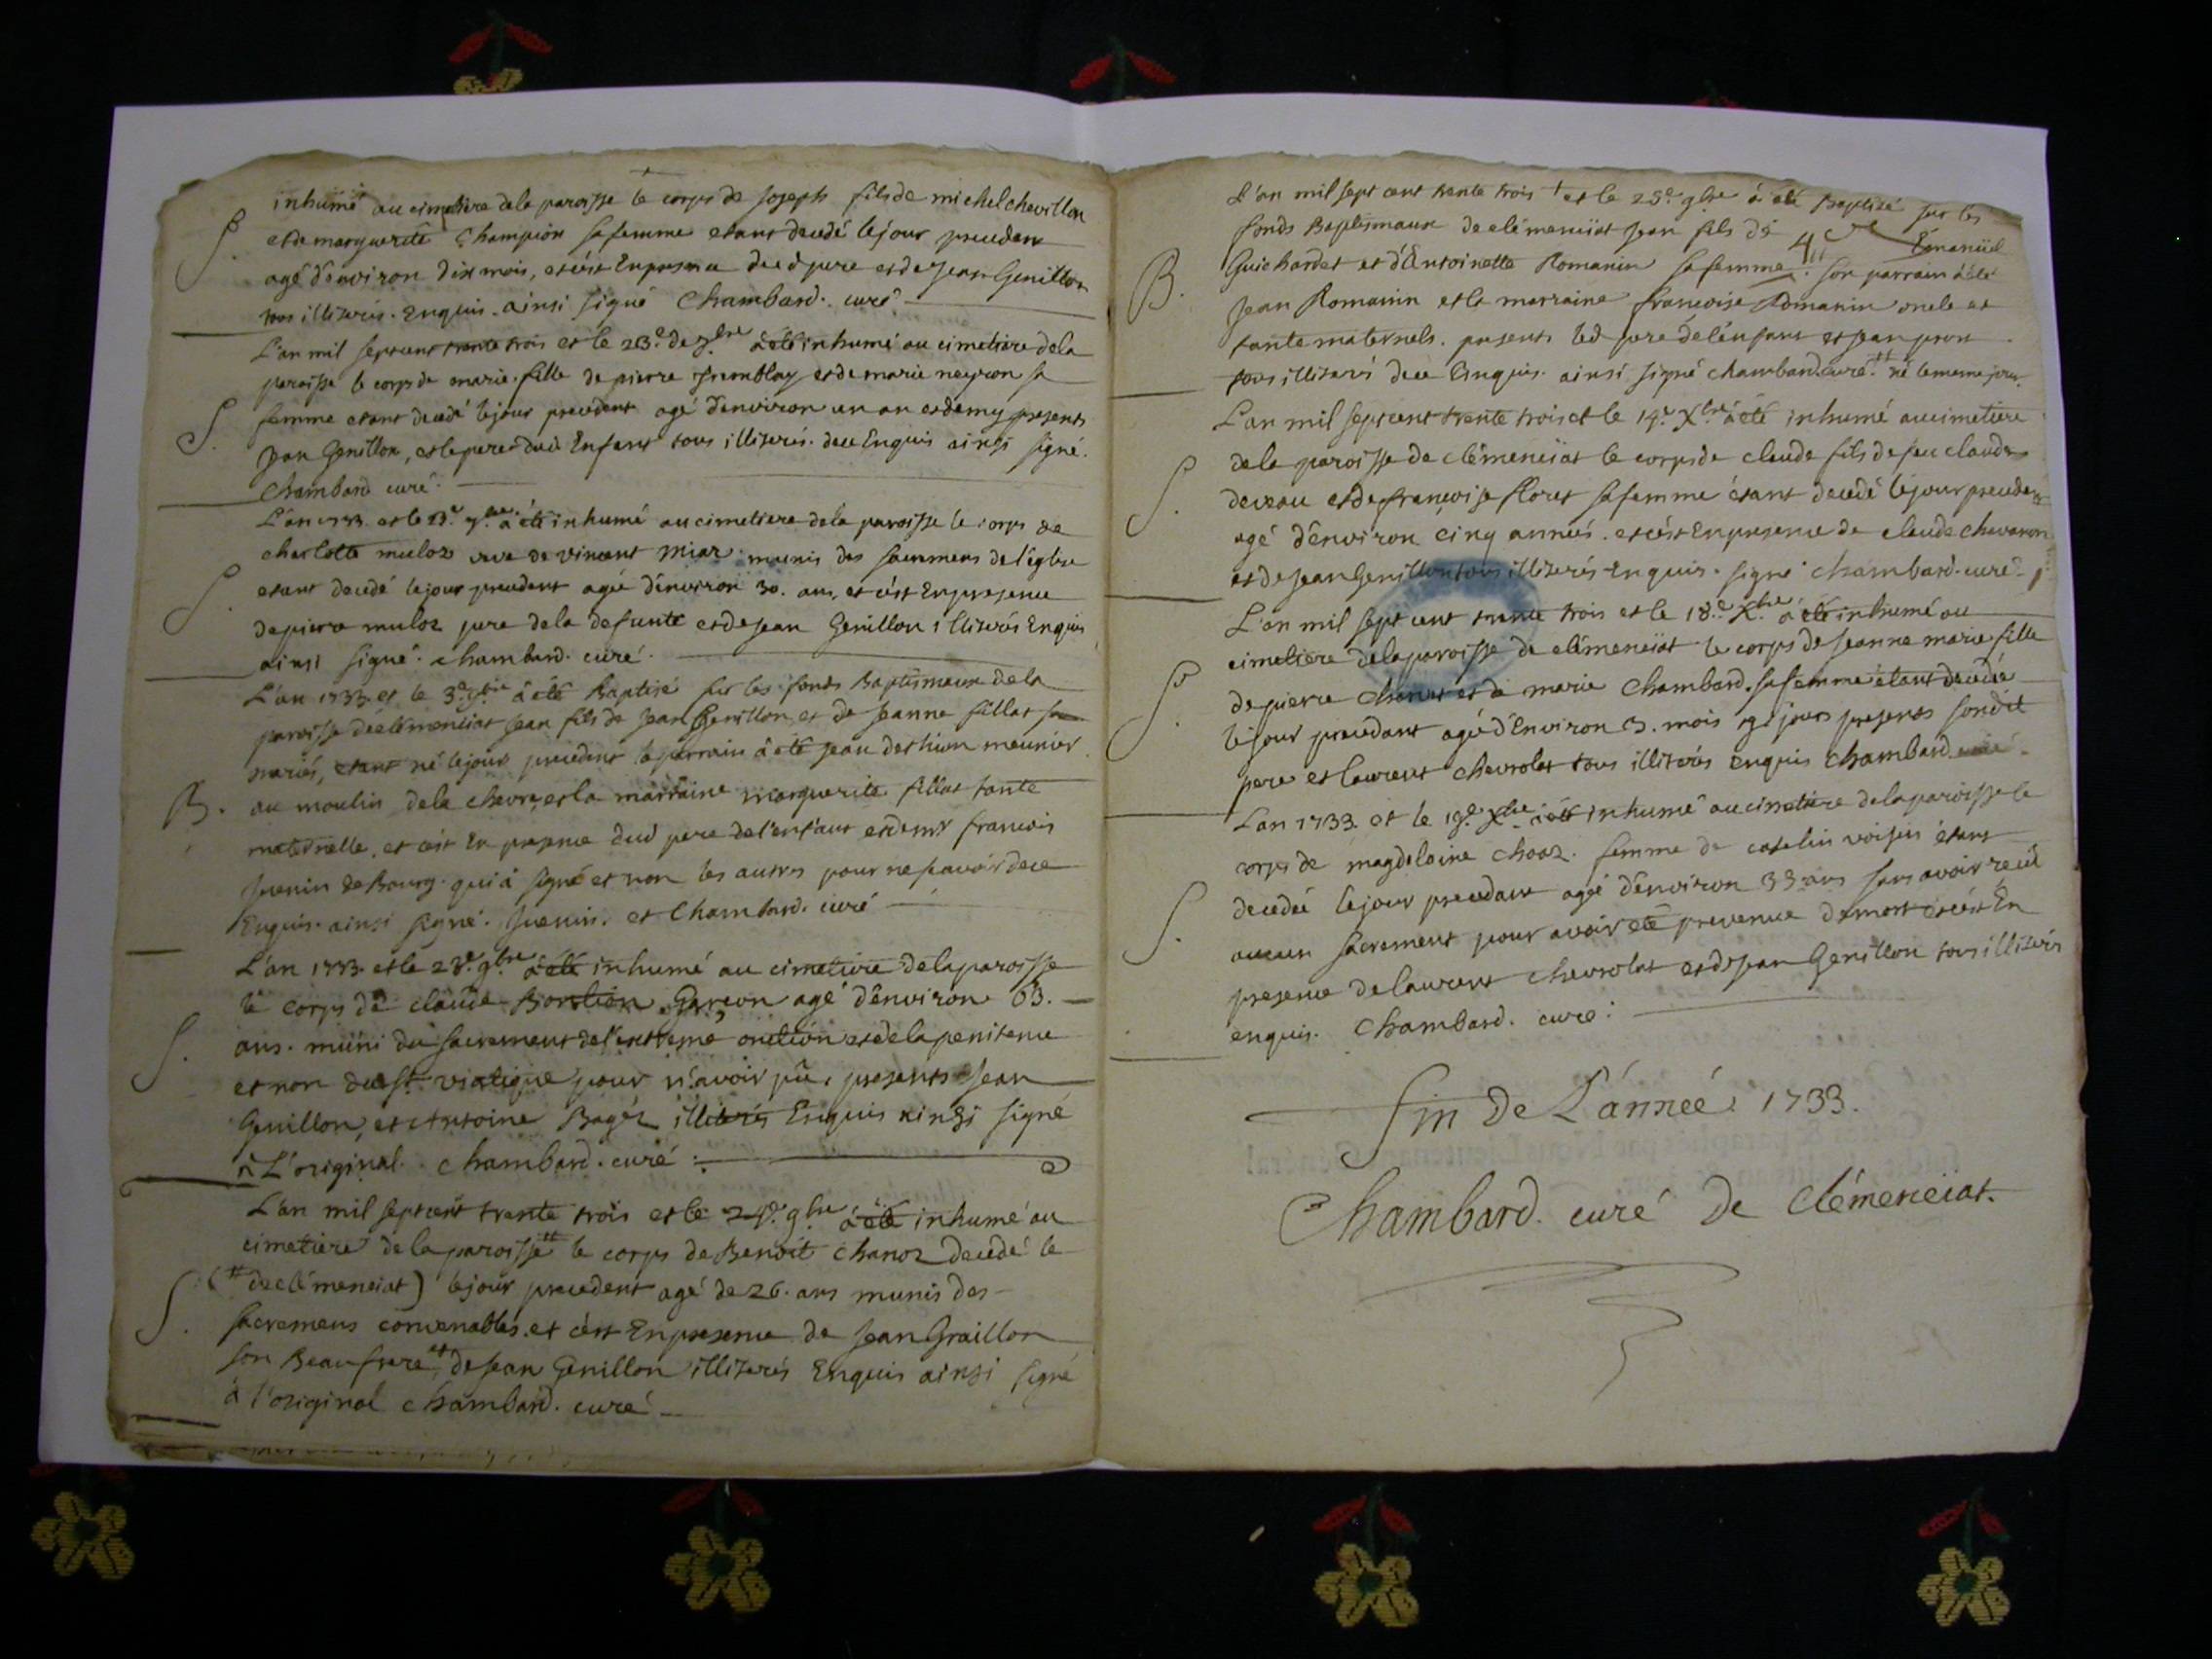 inhumé au cimetiere dela paroisse le corps de Joseph fils de michel chevillon
S. et de marguerite Champion sa femme etant decedé le jour precedent
agé d'environ dix mois, et c'est En presence dud pere et de Jean Genillon
tous illiterés. Enquis. ainsi signé Chambard. curé
L'an mil sept cent trente trois et le 23e de 7bre a été inhumé au cimetiere dela
paroisse le corps de marie fille de pierre Tremblay et de marie neyron sa
S. femme etant decedé le jour precedent agé d'environ un an et demy presents
Jean Genillon, et le pere dud Enfant tous illiterés. de ce Enquis ainsi signé.
Chambard curé.
L'an 1733. et le 7bre a été inhumé au cimetiere dela paroisse le corps de
charlotte muloz de vincent miar munis des sacremens de l'eglise
S. etant decedé le jour precedent agée d'environ 30. ans, et c'est En presence
de pierre muloz pere dela defunte et de Jean Genillon illiterés Enquis
ainsi signé. chambard. curé.
L'an 1733. et le 3e 9bre a été Baptisé sur les fonds Baptismaux dela
paroisse de clémenciat Jean fils de Jean Genillon, et de Jeanne fillat
mariés, etant né le jour precedent le parrain a été Jean meunier
B. au moulin dela chevre, et la marraine marguerite fillat tante
maternelle, et c'est En presence dud pere de l'enfant et de mr francois
Juenin de Bourg. qui a signé et non les autres pour ne scavoir de ce
Enquis. ainsi signé. Juenin. et Chambard. curé
L'an 1733. et le 23e 9bre a été inhumé au cimetiere dela paroisse
le corps de claude Borstion Garçon agé d'environ 63.
S. ans. muni du sacrement de l'extreme onction et de la penitence
et non du st viatique pour n'avoir pû, presents Jean
Genillon, et Antoine Bagéz illiterés Enquis ainsi signé
à L'original. Chambard. curé.
L'an mil sept cent trente trois et le 24e 9bre a été inhumé au
cimetiere de la paroisse # le corps de Benoit chanoz decedé le
S. (# de clémenciat) le jour precedent agé de 26. ans munis des
sacremens convenables. et c'est En presence de Jean Graillon
son Beaufrere et de Jean Genillon illiterés Enquis ainsi signé
à l'original chambard. curé
L'an mil sept cent trente trois + et le 25e 9bre a été Baptisé sur les
fonds Baptismaux de clémenciat Jean fils de Emanüel
B. Guichardet et d'Antoinette Romanin sa femme #. son parrain a été
Jean Romanin et la marraine francoise Romanin oncle et
tante maternels. presents led pere de l'enfant et Jean
tous illiterés de ce Enquis. ainsi signé chambard curé. # né le meme jour.
L'an mil sept cent trente trois et le 14e Xbre a été inhumé au cimetiere
dela paroisse de clémenciat le corps de claude fils de feu claude
S. et de francoise floret sa femme étant decedé le jour precedent
agé d'environ cinq années. et c'est En presence de claude chavanon
et de Jean Genillon tous illiterés Enquis. signé chambard. curé
L'an mil sept cent trente trois et le 18e Xbre a été inhumé au
cimetiere dela paroisse de clémenciat le corps de Jeanne marie fille
S. de pierre et de marie Chambard. sa femme étant decedée
le jour precedant agé d'Environ 3. mois jours presents sondit
pere et laurent chevrolat tous illiterés enquis chambard curé
L'an 1733. et le 19e Xbre a été inhumé au cimetiere dela paroisse le
corps de magdelaine chooz. femme de catelin voisin étant
S. decedée le jour precedant agée d'environ 33 ans sans avoir reçû
aucun sacrement pour avoir été prevenue de mort et c'est En
presence de laurent chevrolat et de Jean Genillon tous illiterés
enquis. Chambard. curé.
fin de L'année 1733.
Chambard. curé de Clémenciat.